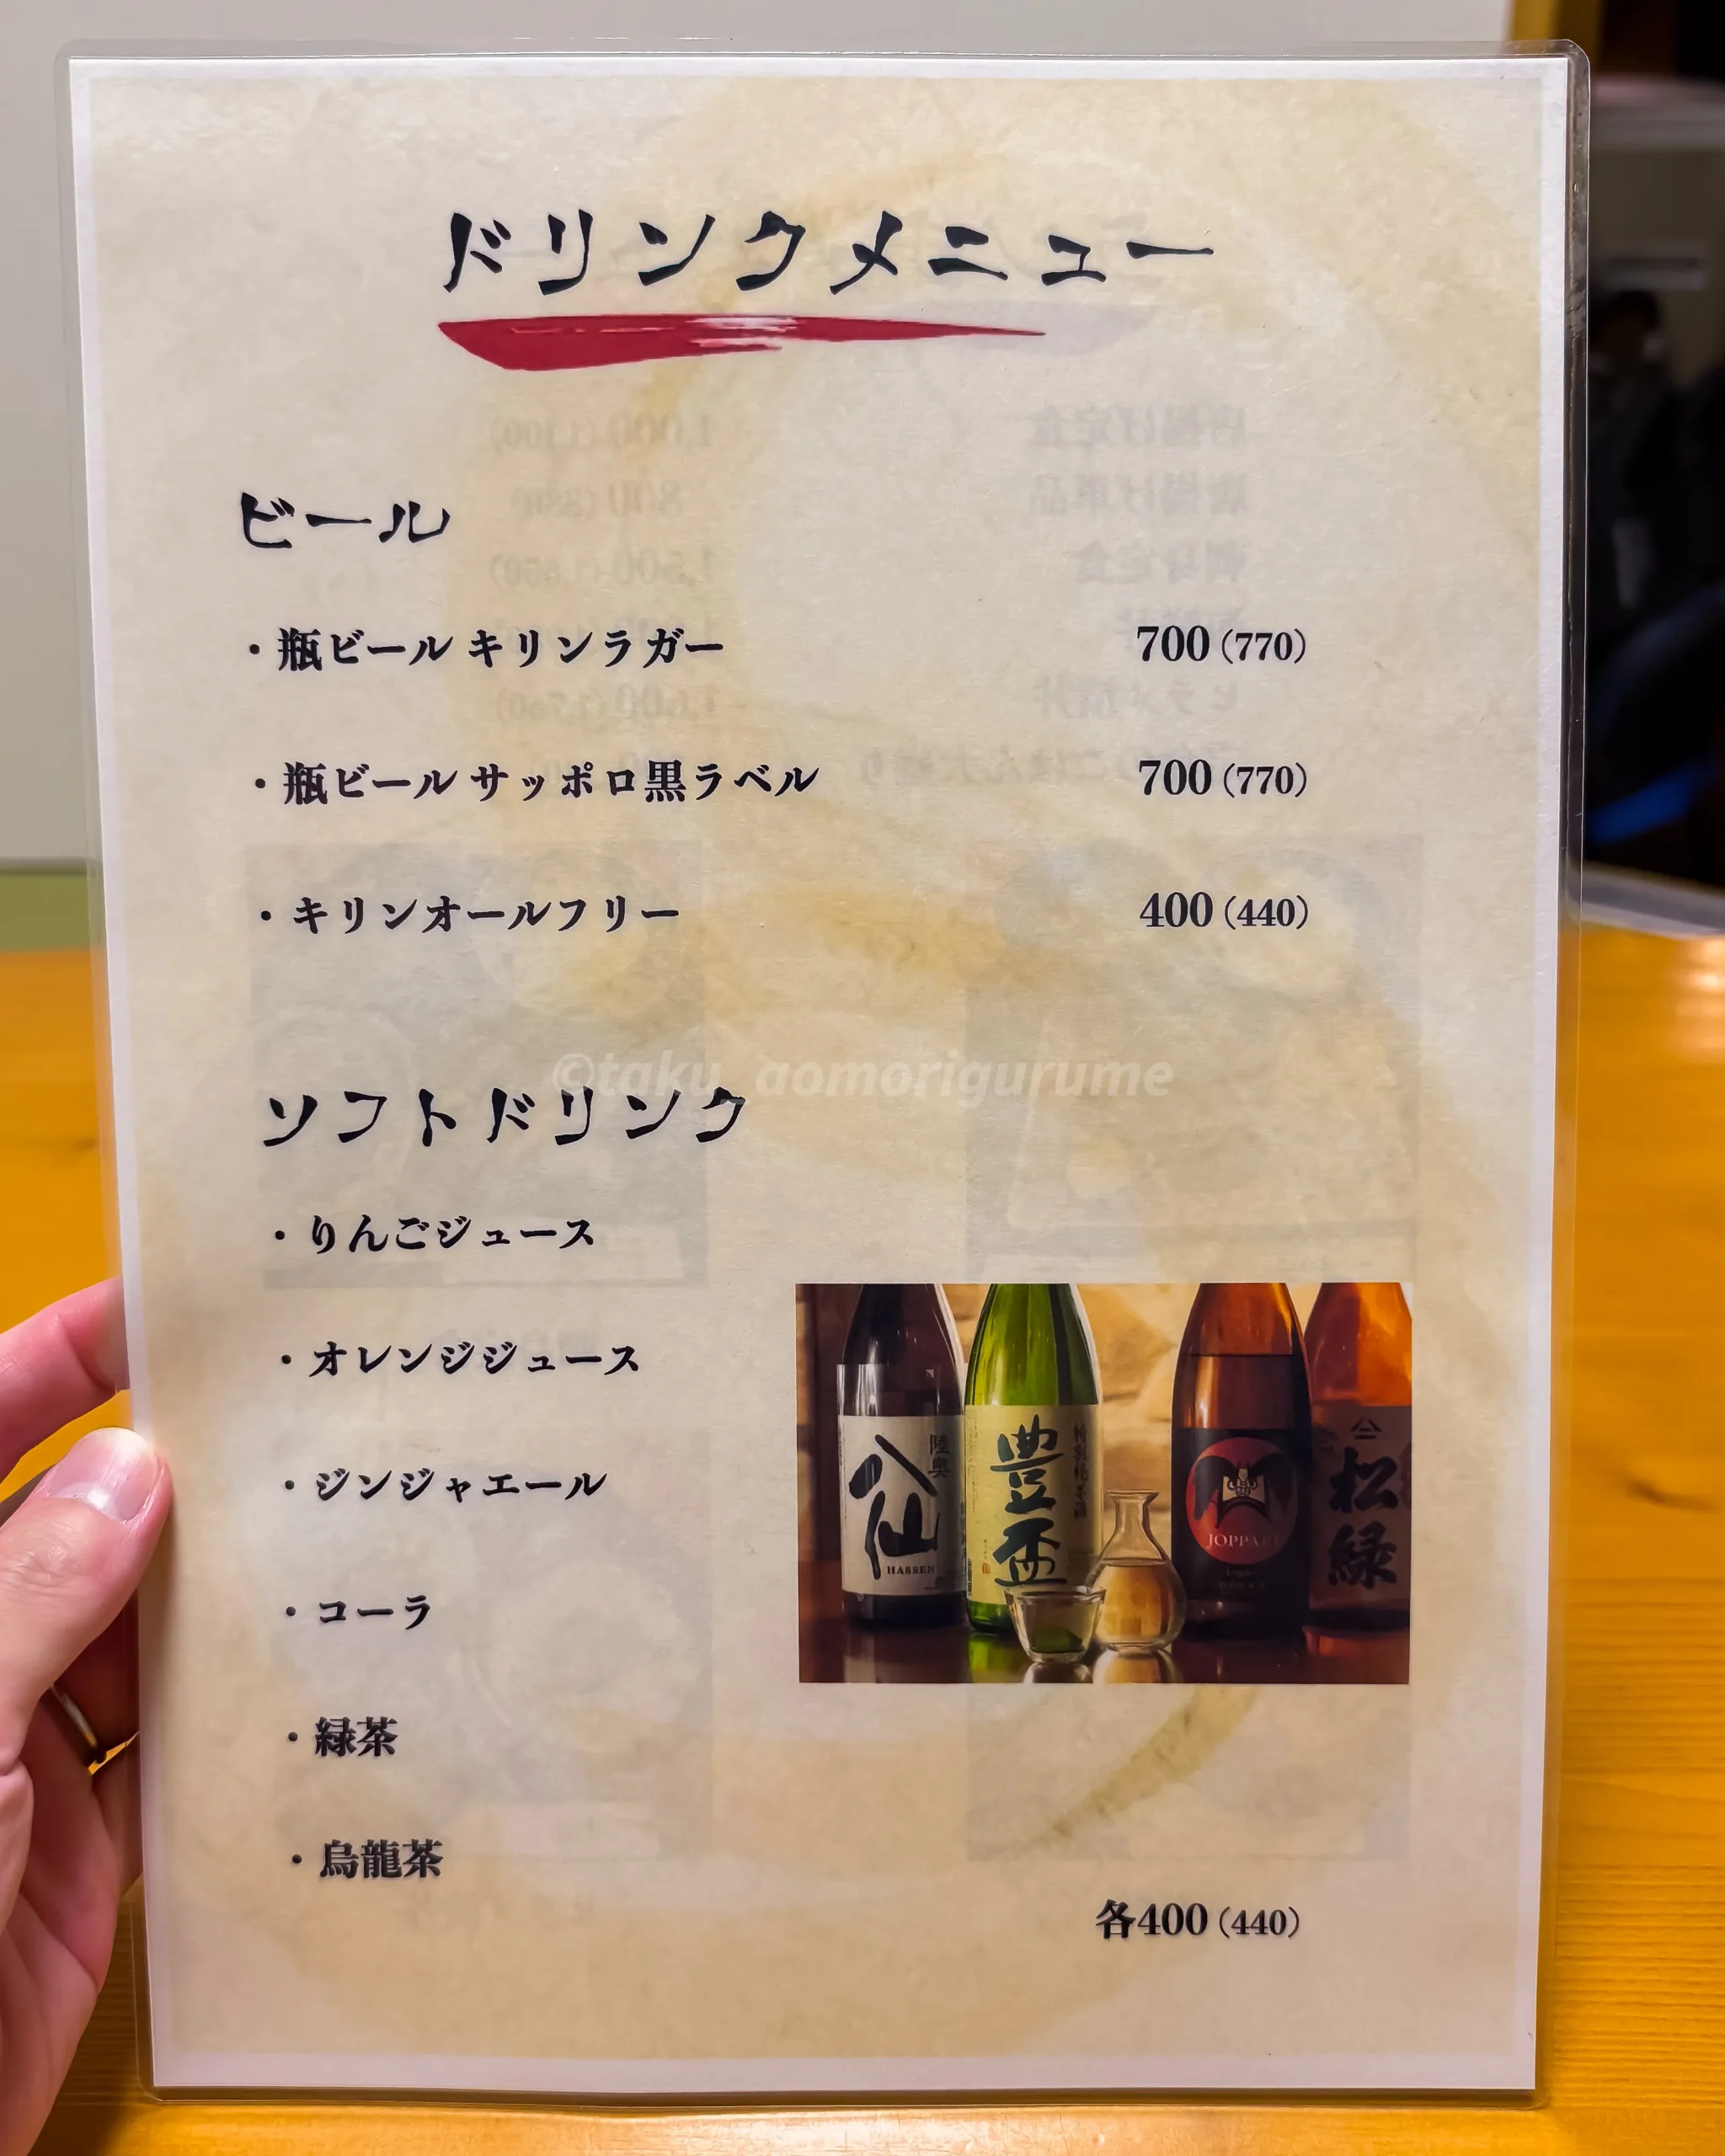 ドリンクメニュー
ビール
・瓶ビール キリンラガー 700(770)
・瓶ビール サッポロ黒ラベル 700(770)
・キリンオールフリー 400(440)
©taku_aomorigurume
ソフトドリンク
・りんごジュース
・オレンジジュース
・ジンジャエール
・コーラ
・緑茶
・烏龍茶
各400(440)
陸奥
八仙
HASSEN
豊盃
JOPPARI
松緑